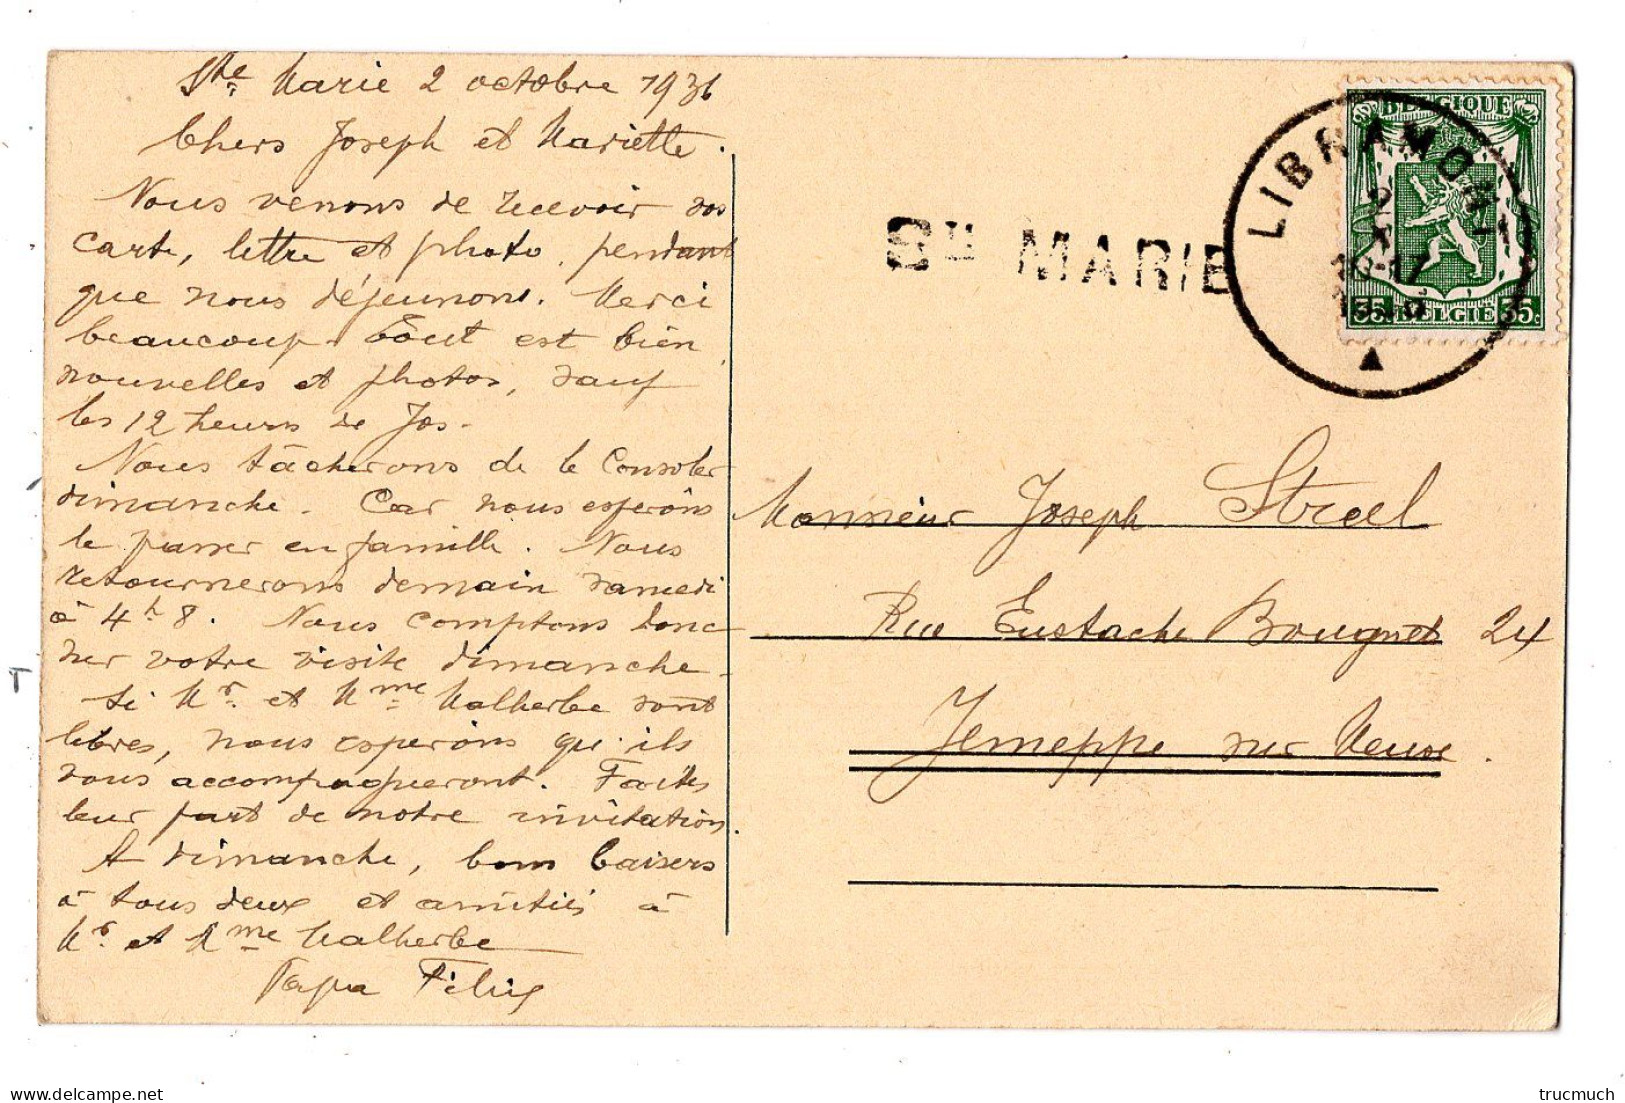 Ste Marie 2 octobre 1936
Chers Joseph et Mariette.
Nous venons de recevoir vos
carte, lettre et photo, pendant
que nous déjeunons. Merci
beaucoup. Tout est bien,
nouvelles et photos, sauf
les 12 heures de Jos.
Nous tâcherons de le consoler
dimanche. Car nous espérons
le passer en famille. Nous
retournerons demain samedi
à 4h 8. Nous comptons donc
sur votre visite dimanche.
Si Mr. et Mme Malherbe sont
libres, nous espérons qu'ils
vous accompagneront. Faites
leur part de notre invitation.
A dimanche, bons baisers
à tous deux et amitiés à
Mr. et Mme Malherbe
Papa Félix
STE MARIE
LIBRAMONT
2
X
16-17
BELGIQUE
35c BELGIE 35c
Monsieur Joseph Streel
Rue Eustache Bougnet 24
Jemeppe sur Meuse.
trucmuch / Delcampe.net